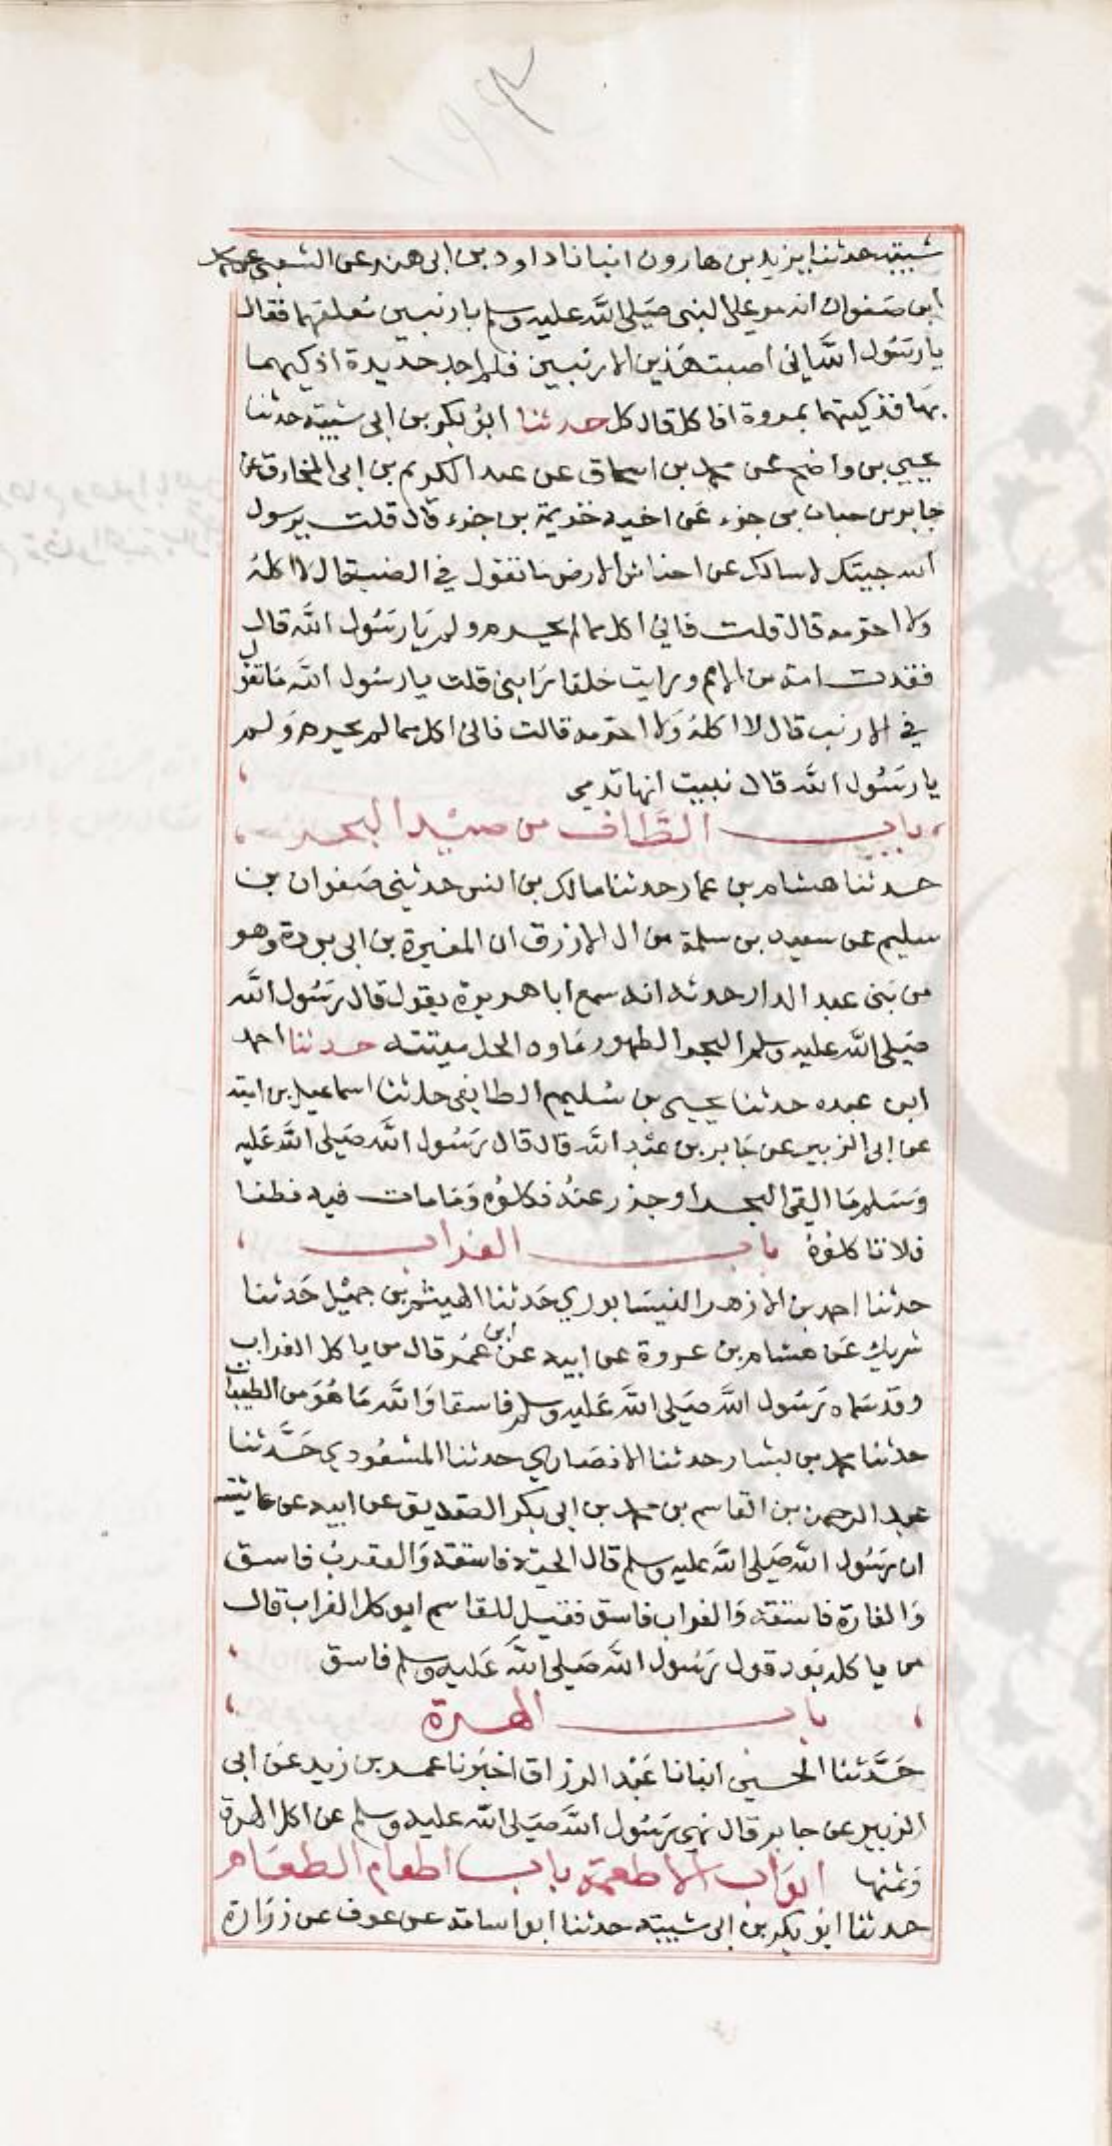 شيبة حدثنا يزيد بن هارون انبانا داود بن ابى هند عن الشعبى عن محمد
ابن صفوان انه مر على النبى صَلى اللَّه عليه وسلم بارنبين مُعلقهما فقال
يا رسُول اللَّه انى اصبت هَذين الارنبين فلم اجد حديدة اذكيهما
بهَا فذكيتهما بمروة افا كل قال كل حدثنا ابوُ بكر بن ابى شيبة حدثنا
يحيى بن واضح عن محمد بن اسحاق عن عبد الكريم بن ابى المخارق عن
جابر بن حبان بن جزء عَن اخيه خزيمة بن جزء قال قلت يرسول
الله جيتك لاسالك عن احناش الارض ما تقول في الضب قال لا اكلهُ
ولا احرمه قال قلت فانيُ اكل مما لم يحرم ولم يَا رَسُول اللَّه قال
فقدت امة من الامم ورايت خلقا رَابنى قلت يا رسُول اللَّه مَا تقول
في الارنب قال لا اكلهُ وَلا احرمه قالت فانىُ اكل مما لم يحرم وَلم
يا رسُول اللَّه قال نبيت انها تدمى
باب الطَّاف من صيد البحر
حدثنا هشام بن عمار حدثنا مالك بن انس حدثنى صَفوان بن
سليم عن سعيد بن سلمة من ال الازرق ان المغيرة بن ابى بردة وهو
من بَنى عبد الدار حدثه انه سمع ابا هريرة يقول قال رَسُول اللَّه
صَلى اللَّه عليه وسلم البحر الطهور مَاوه الحل ميتته حدثنا احمد
ابن عبده حدثنا يحيى بن سُليم الطايفى حدثنا اسماعيل بن امية
عن ابى الزبير عن جَابر بن عَبْد اللَّه قال قال رَسُول اللَّه صَلى اللَّه عَليه
وَسَلم مَا القى البحر او جزر عَنهُ فكلوُه وَمَا مات فيه فطفا
فلا تاكلوُهُ باب الغراب
حدثنا احمد بن الازهر النيسَابوري حَدثنا الهيثم بن جميْل حَدثنا
شريك عَن هشام بن عروة عن ابيه عن ابن عمُر قال من ياكل الغراب
وقد سَماه رَسُول اللَّه صَلى اللَّه عَليه وسلم فاسقا وَاللَّه مَا هُوَ من الطيبات
حدثنا محمد بن بشار حدثنا الانصَاري حدثنا المسْعُودي حَدَّثنا
عبد الرحمن بن القاسم بن محمد بن ابى بكر الصّديق عن ابيه عن عائشة
ان رَسُول اللَّه صَلى اللَّه عليه وسلم قال الحيّة فاسقة وَالعقربُ فاسق
وَالفارة فاسقة وَالغراب فاسق فقيل للقاسم ايوكل الغراب قال
من ياكله بَعد قول رَسُول اللَّه صَلى اللَّه عَليه وسلم فاسق
باب الهرة
حَدَّثنا الحسين انبانا عَبْد الرزاق اخبَرنا عمر بن زيد عَن ابى
الزبير عن جابر قال نهى رَسُول اللَّه صَلى اللَّه عليه وسلم عن اكل الهرة
وَثمنها ابوَاب الاطعمة باب اطعام الطعَام
حدثنا ابوُ بكر بن ابى شيبة حدثنا ابوا سامة عن عوف عن زرَارة